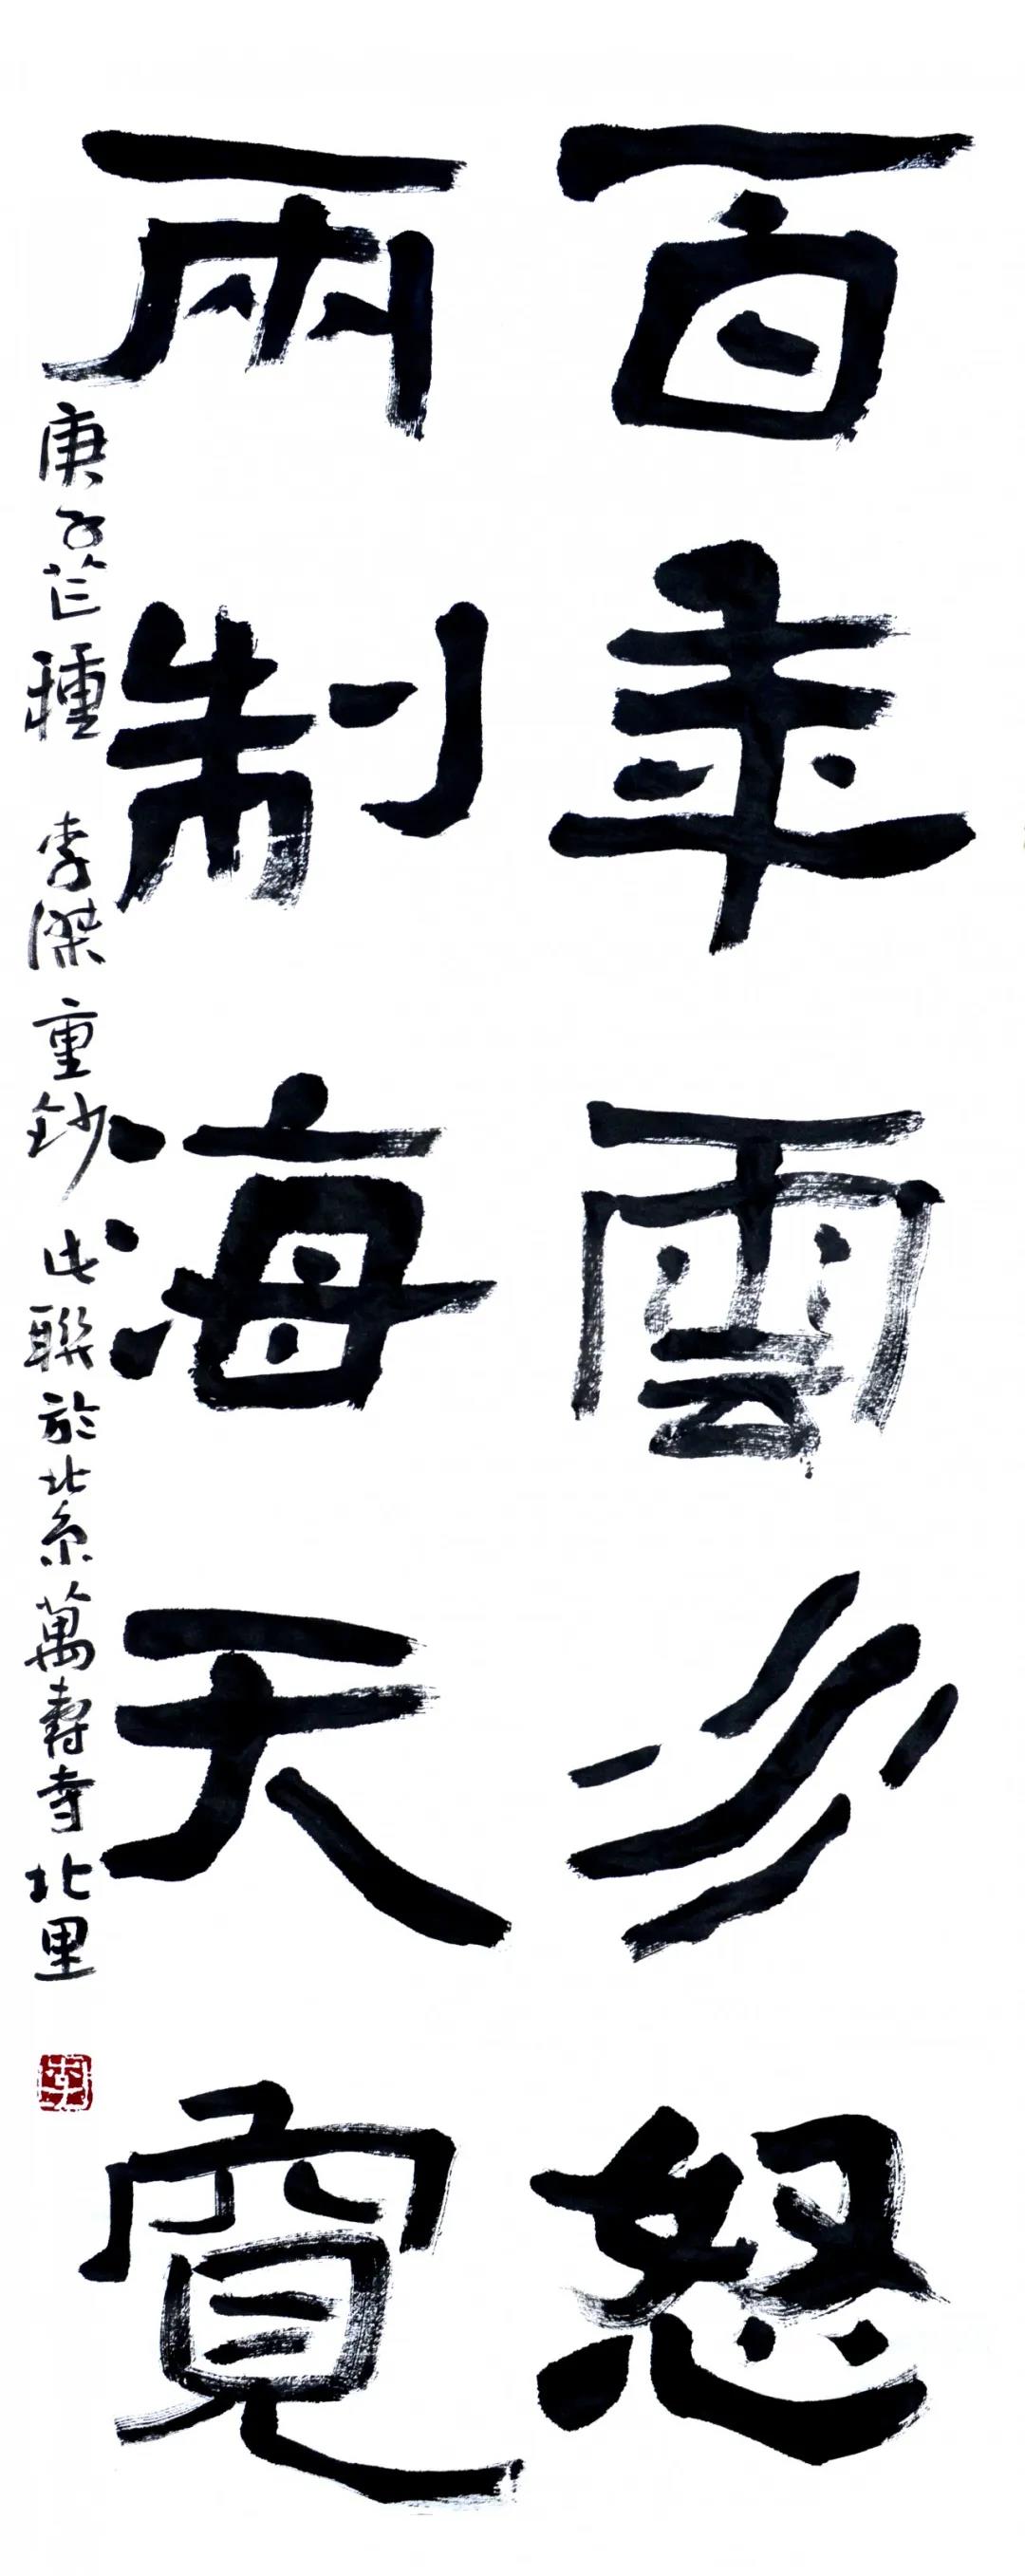 百年雲水怒
兩制海天寬
庚子芒種 李傑重鈔此聯於北京萬壽寺北里
李